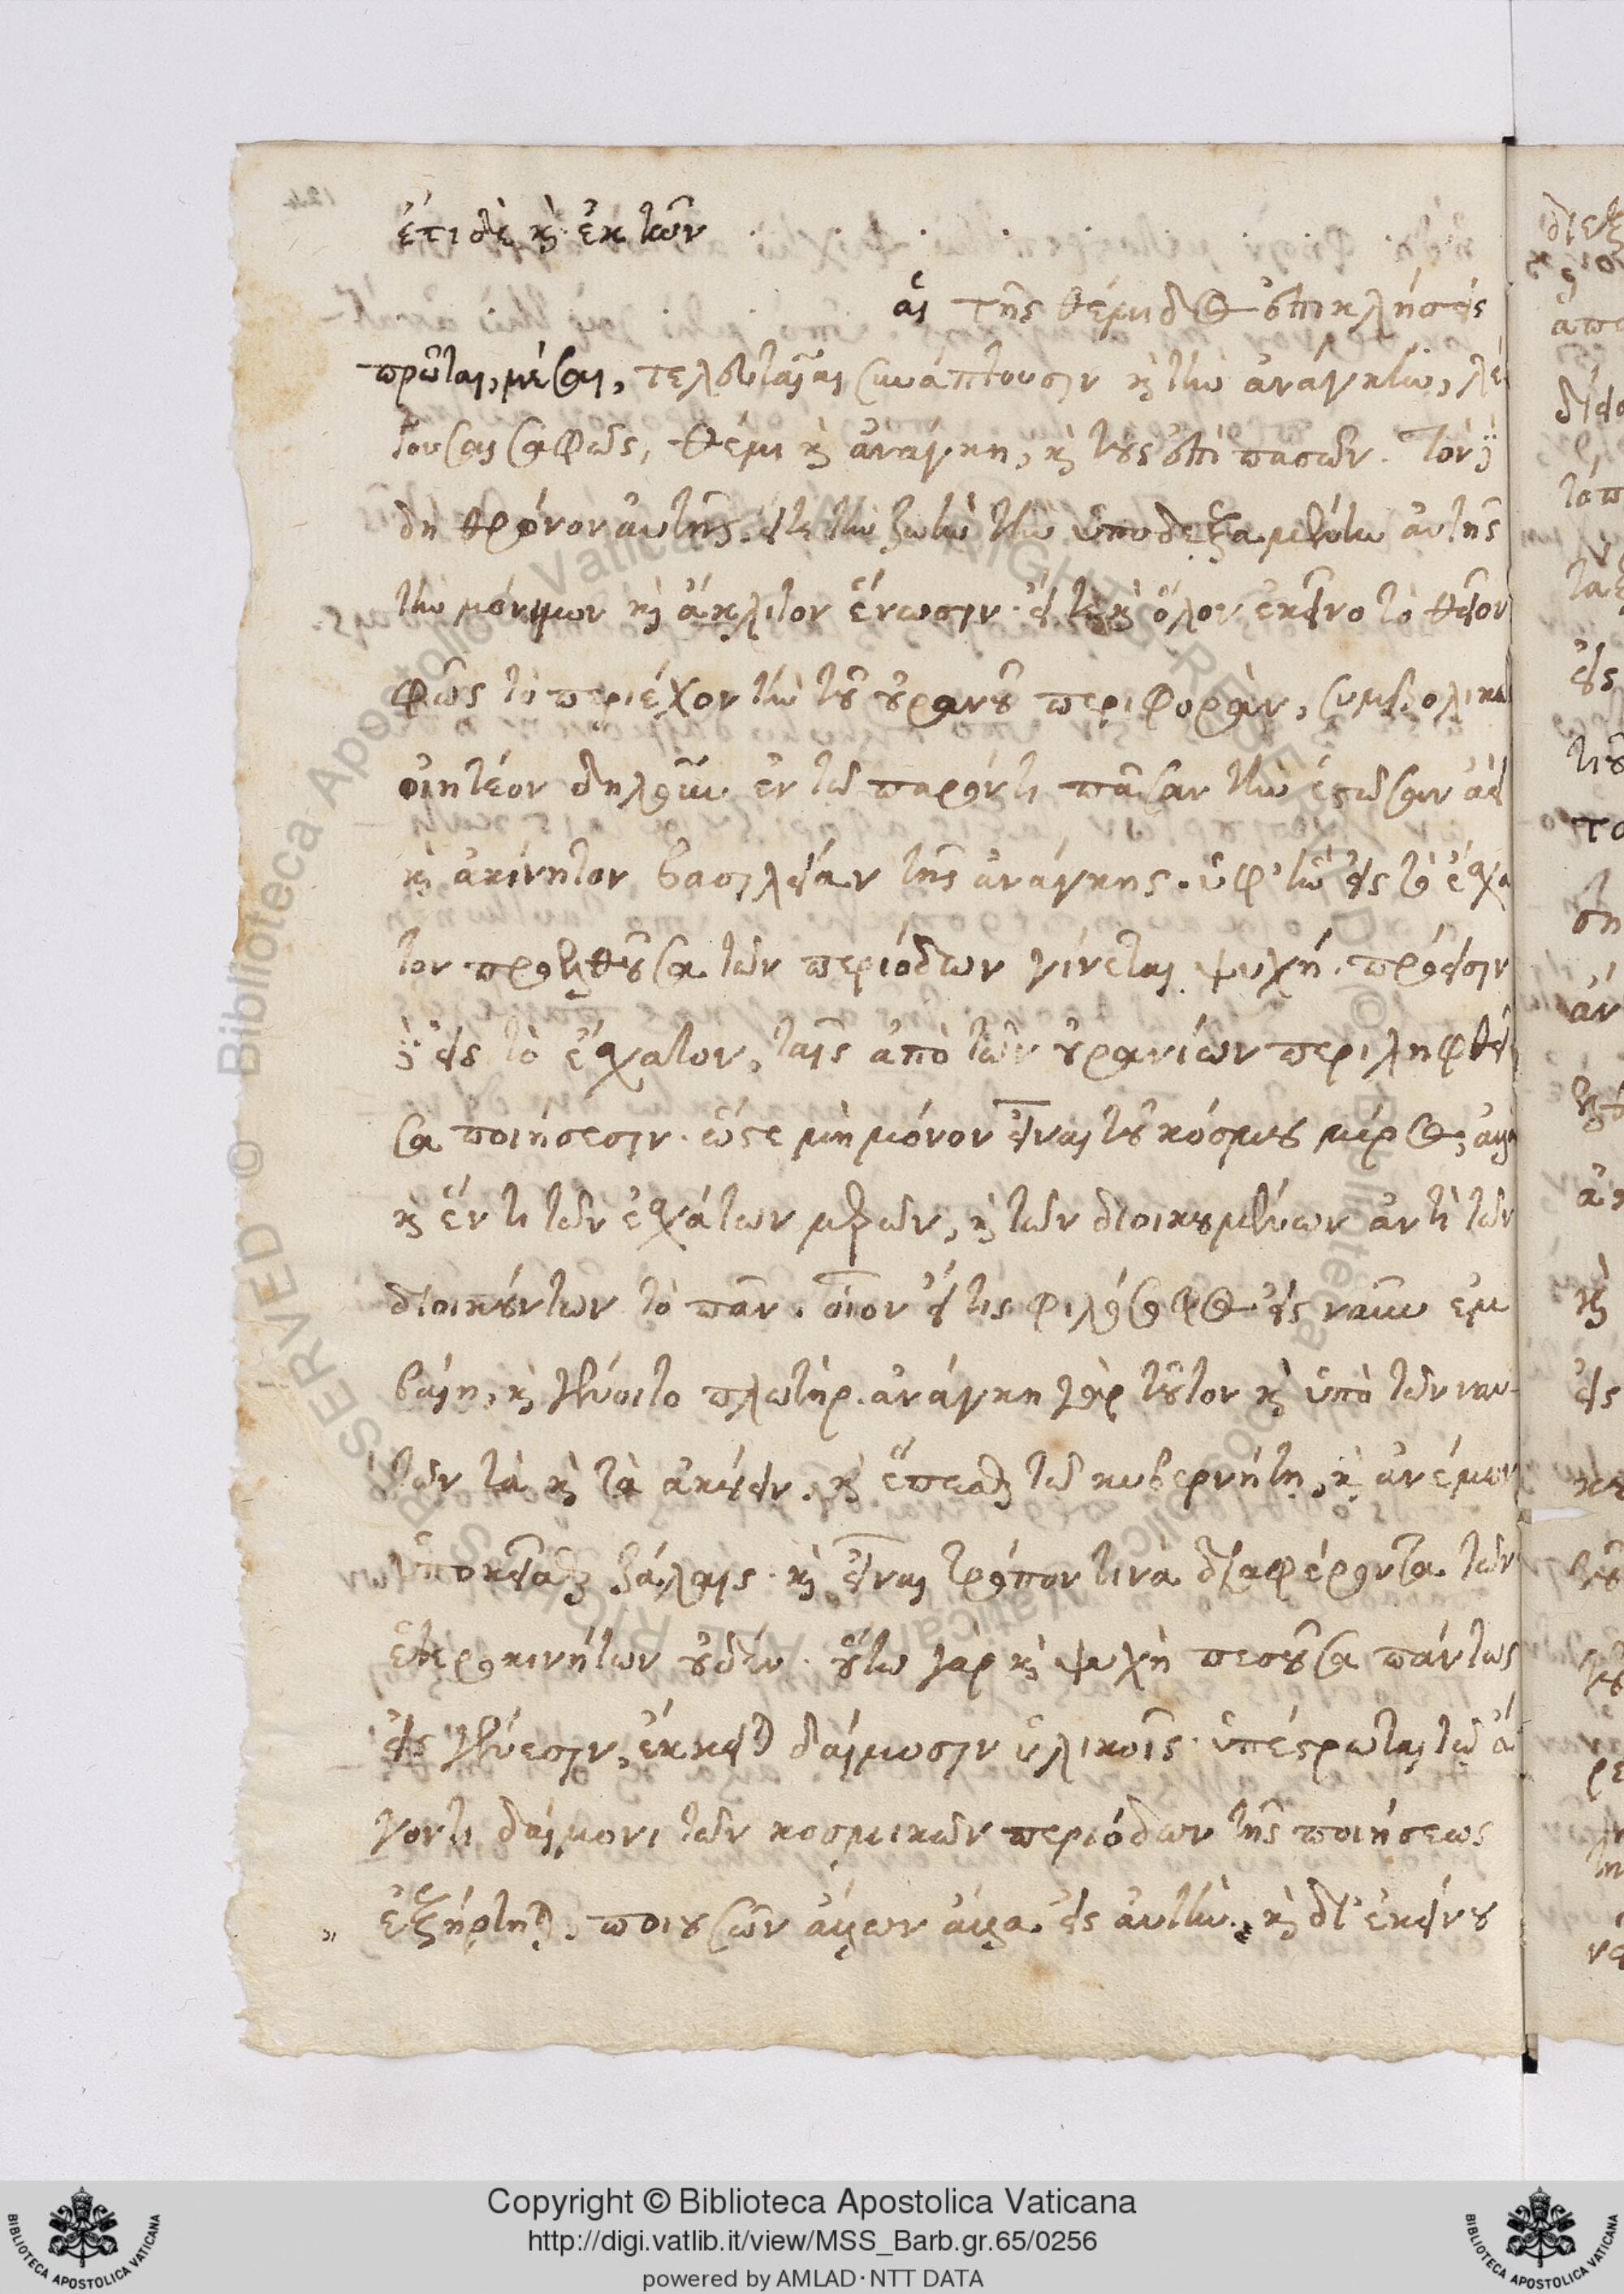 ἔτι δὲ καὶ ἐκ τῶν . . . . . . . . .
αἱ τῆς θέμιδος ἐπικλήσεις
πρῶται, μέσαι, τελευταῖαι συνάπτουσιν καὶ τὴν ἀνάγκην, λέ
γουσαι σαφῶς, θέμι καὶ ἀνάγκη, καὶ τοὺς ἐπὶ πασῶν. Τὸν
δὴ θρόνον αὐτῆς. εἴτε τὴν ζωὴν τὴν ὑποδεξαμένην αὐτῆς
τὴν μόνιμον καὶ ἄκλιτον ἕνωσιν. εἴτε καὶ ὅλον ἐκεῖνο τὸ θεῖον
φῶς τὸ περιέχον τὴν τοῦ οὐρανοῦ περιφοράν, συμβολικῶς
οἰητέον δηλοῦν ἐν τῷ παρόντι πᾶσαν τὴν ἑστῶσαν ἀεὶ
καὶ ἀκίνητον βασιλείαν τῆς ἀνάγκης. ὑφ' ἣν εἰς τὸ ἔσχα
τον προελθοῦσα τῶν περιόδων γίνεται ψυχή. πρόεισιν
δὲ εἰς τὸ ἔσχατον, ταῖς ἀπὸ τῶν οὐρανίων περιληφθεῖ
σα ποιήσεσιν. ὥστε μὴ μόνον εἶναι τοῦ κόσμου μέρος, ἀλλὰ
καὶ ἕν τι τῶν ἐσχάτων μερῶν, καὶ τῶν διοικουμένων ἀντὶ τῶν
διοικούντων τὸ πᾶν. οἷον εἴ τις φιλόσοφος εἰς ναῦν ἐμ
βαίη, καὶ γένοιτο πλωτήρ. ἀνάγκη γὰρ τοῦτον καὶ ὑπὸ τῶν ναυ-
τῶν τὰ καὶ τὰ ἀκούειν. καὶ ἕπεσθαι τῷ κυβερνήτῃ, καὶ ἀνέμων
ὑποκεῖσθαι ζάλαις. καὶ εἶναι τρόπον τινὰ διαφέροντα τῶν
ἑτεροκινήτων οὐδέν. οὕτω γὰρ καὶ ψυχὴ πεσοῦσα πάντως
εἰς γένεσιν, ἔκκειται δαίμοσιν ὑλικοῖς. ὑπέστρωται τῷ ἄ
γοντι δαίμονι τῶν κοσμικῶν περιόδων τῆς ποιήσεως
ἐξήρτηται. ποιουσῶν ἄλλων ἄλλα εἰς αὐτήν. καὶ δι' ἐκείνου
Copyright © Biblioteca Apostolica Vaticana
http://digi.vatlib.it/view/MSS_Barb.gr.65/0256
powered by AMLAD·NTT DATA
BIBLIOTECA APOSTOLICA VATICANA
BIBLIOTECA APOSTOLICA VATICANA